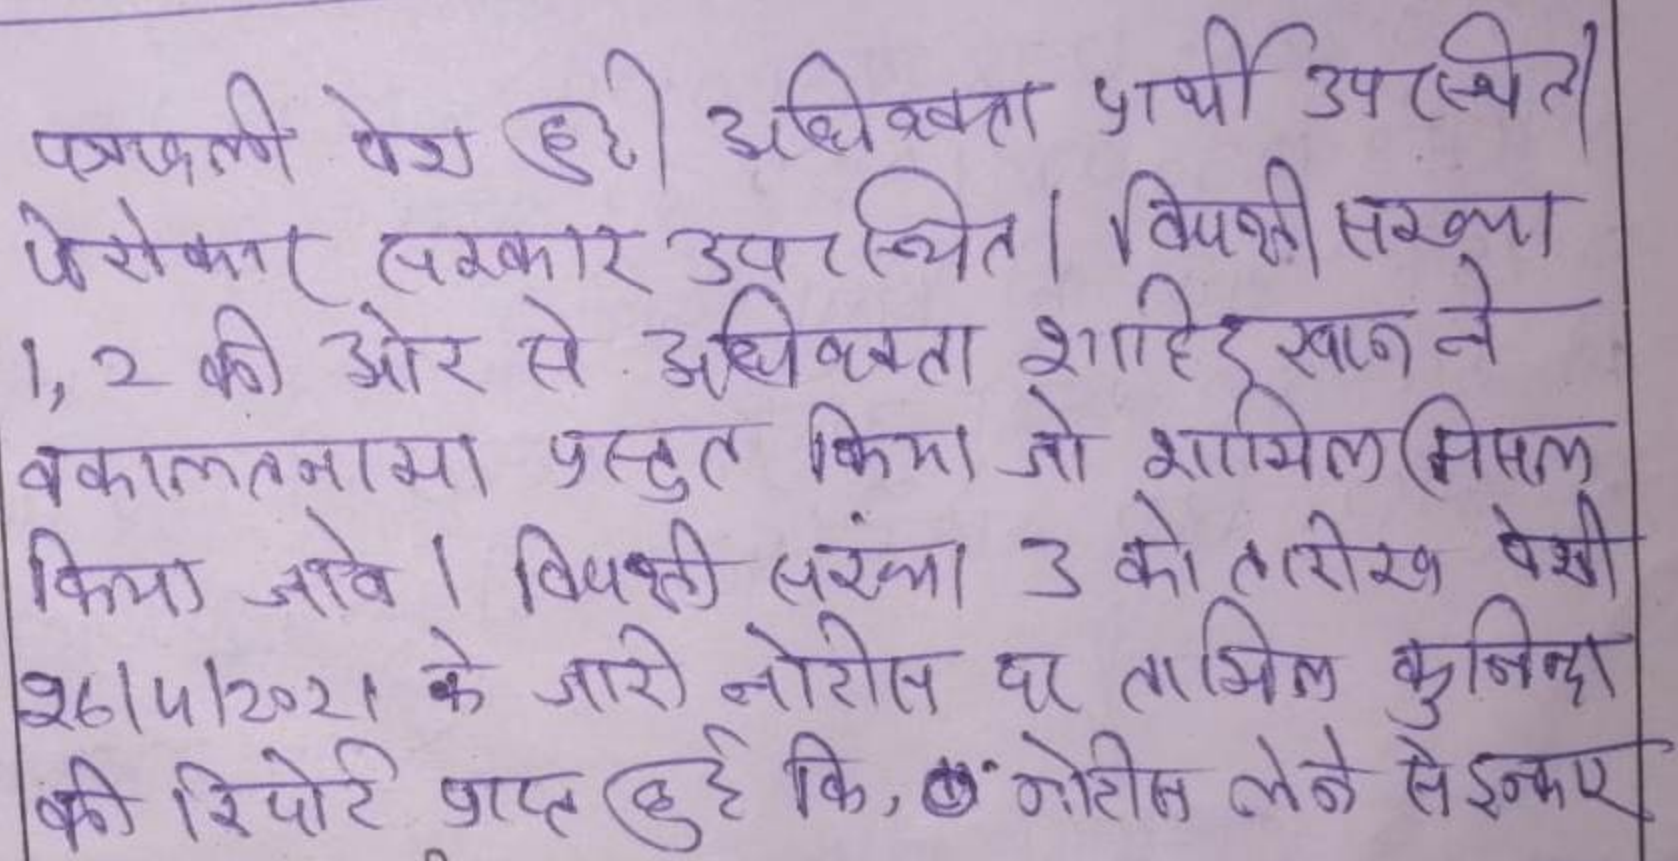 पत्रावली पेश हुई। अधिवक्ता प्रार्थी उपस्थित।
पेरोकार सरकार उपस्थित। विपक्षी संख्या
1, 2 की ओर से अधिवक्ता शाहिद खान ने
वकालतनामा प्रस्तुत किया जो शामिल मिसल
किया जावे। विपक्षी संख्या 3 को तारीख पेशी
26/4/2021 के जारी नोटीस पर तामिल कुनिन्दा
की रिपोर्ट प्राप्त हुई कि, नोटीस लेने से इन्कार